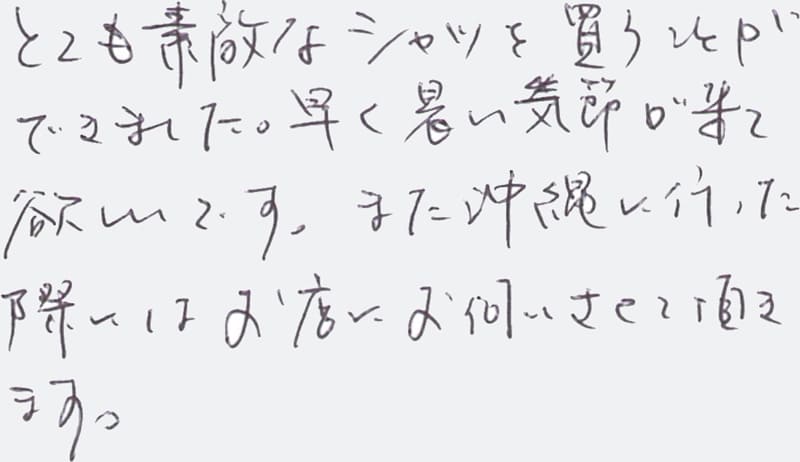 とても素敵なシャツを買うことが
できました。早く暑い気節が来て
欲しいです。また沖縄に行った
際にはお店にお伺いさせて頂き
ます。